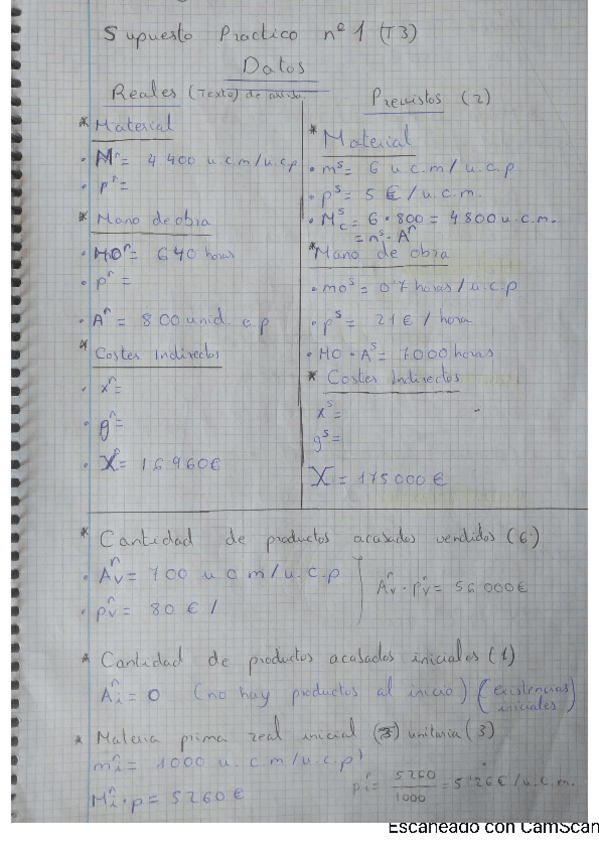 Supuesto Practico nº 1 (T3)
Datos
Reales (Texto) de
* Material
• Mʳ = 4 400 u.c.m/u.c.p
• pʳ =
* Mano de obra
• MOʳ = 640 horas
• pʳ =
• Aʳ = 800 unid. c p
* Costes Indirectos
• xʳ =
• gʳ =
• X = 16 960 €
Previstos (2)
* Material
• mˢ = 6 u.c.m/u.c.p
• pˢ = 5 €/u.c.m.
• Mˢc = 6 · 800 = 4800 u.c.m.
= nˢ · Aʳ
* Mano de obra
• moˢ = 0'7 horas/u.c.p
• pˢ = 21 € / hora
• MO · Aˢ = 7000 horas
* Costes Indirectos
xˢ =
gˢ =
X = 175 000 €
* Cantidad de productos acabados vendidos (6)
• Aʳv = 700 u c m/u.c.p
• pʳv = 80 € /
Aʳv · pʳv = 56 000 €
* Cantidad de productos acabados iniciales (1)
Aʳi = 0 (no hay productos al inicio) (existencias iniciales)
* Materia prima real inicial (3) unitaria (3)
mʳi = 1000 u. c m/u.c.p
Mʳi · p = 5260 €
pʳi = 5260/1000 = 5'26 €/u.c.m.
Escaneado con CamScan